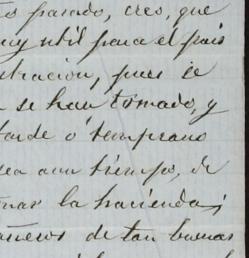 pasado, creo, que
muy util para el pais
tracion, pues se
se han tomado, y
tarde ó temprano
sea aun tiempo, de
la hacienda;
de tan buenas